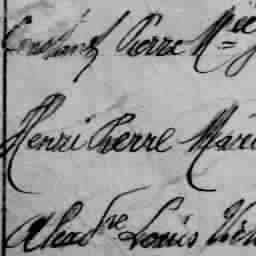 Constant Pierre M
Henri Pierre Marie
Alexdre Louis